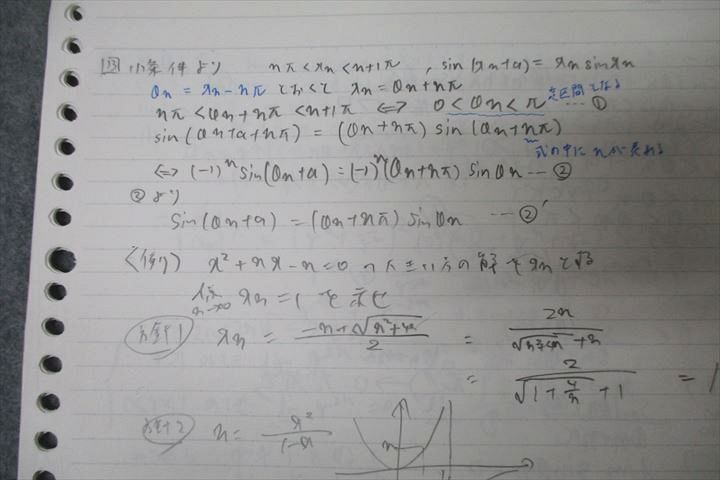 (1)条件より nπ < xn < n+1π , sin(xn+a) = xn sin xn
θn = xn - nπ とおくと xn = θn + nπ
nπ < θn + nπ < n+1π ⇔ 0 < θn < π … ① 定区間となる
sin(θn+a+nπ) = (θn+nπ) sin(θn+nπ)
式の中にnが表れる
⇔ (-1)^n sin(θn+a) = (-1)^n (θn+nπ) sin θn … ②
②より
sin(θn+a) = (θn+nπ) sin θn … ②'
<例> x²+nx-n=0 の大きい方の解をxnとする
lim n→∞ xn = 1 を示せ
方針1 xn = (-n+√(n²+4n))/2 = 2n/(√(n²+4n)+n)
= 2/(√(1+4/n)+1) = 1
方針2 n = x²/(1-x)
n
1